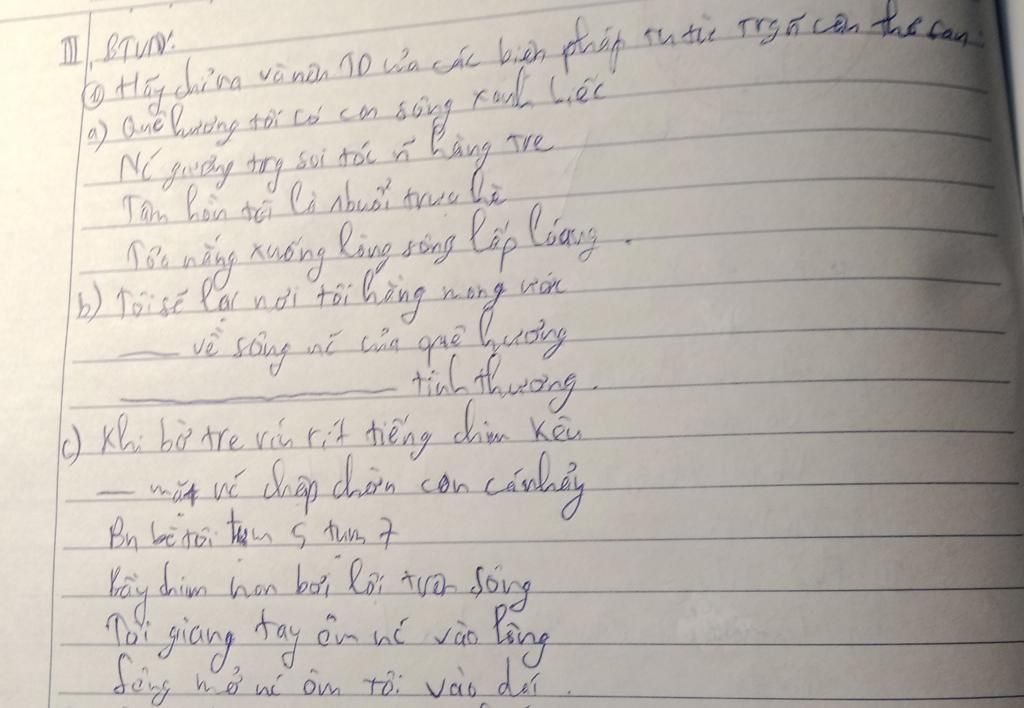 III, BTVN:
① Hãy chỉ ra và nêu TD của các biện pháp tu từ trg ~ câu thơ sau:
a) Quê hương tôi có con sông xanh biếc
Nc gương trg soi tóc ~ hàng tre
Tâm hồn tôi là 1 buổi trưa hè
Tỏa nắng xuống lòng sông lấp loáng.
b) Tôi sẽ lại nơi tôi hằng mong ước
—— về sông nc của quê hương
———————— tình thương.
c) Khi bờ tre ríu rít tiếng chim kêu
— mặt nc chập chờn con cá nhảy
Bn bè tôi tụm 5 tụm 7
Bầy chim non bơi lội trên sông
Tôi giang tay ôm nc vào lòng
Sông mở nc ôm tôi vào dạ.